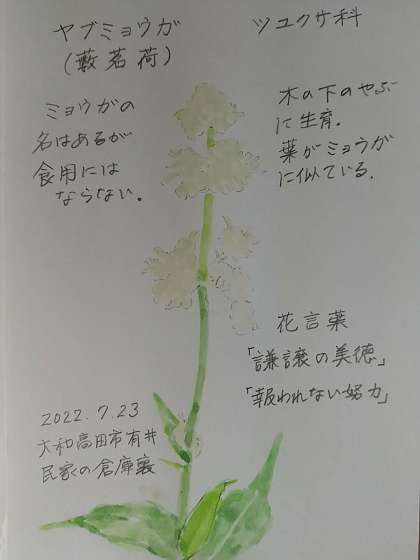 ヤブミョウガ
(藪茗荷)
ツユクサ科
ミョウガの
名はあるが
食用には
ならない。
木の下のやぶ
に生育.
葉がミョウガ
に似ている.
花言葉
「謙譲の美徳」
「報われない努力」
2022.7.23
大和高田市有井
民家の倉庫裏